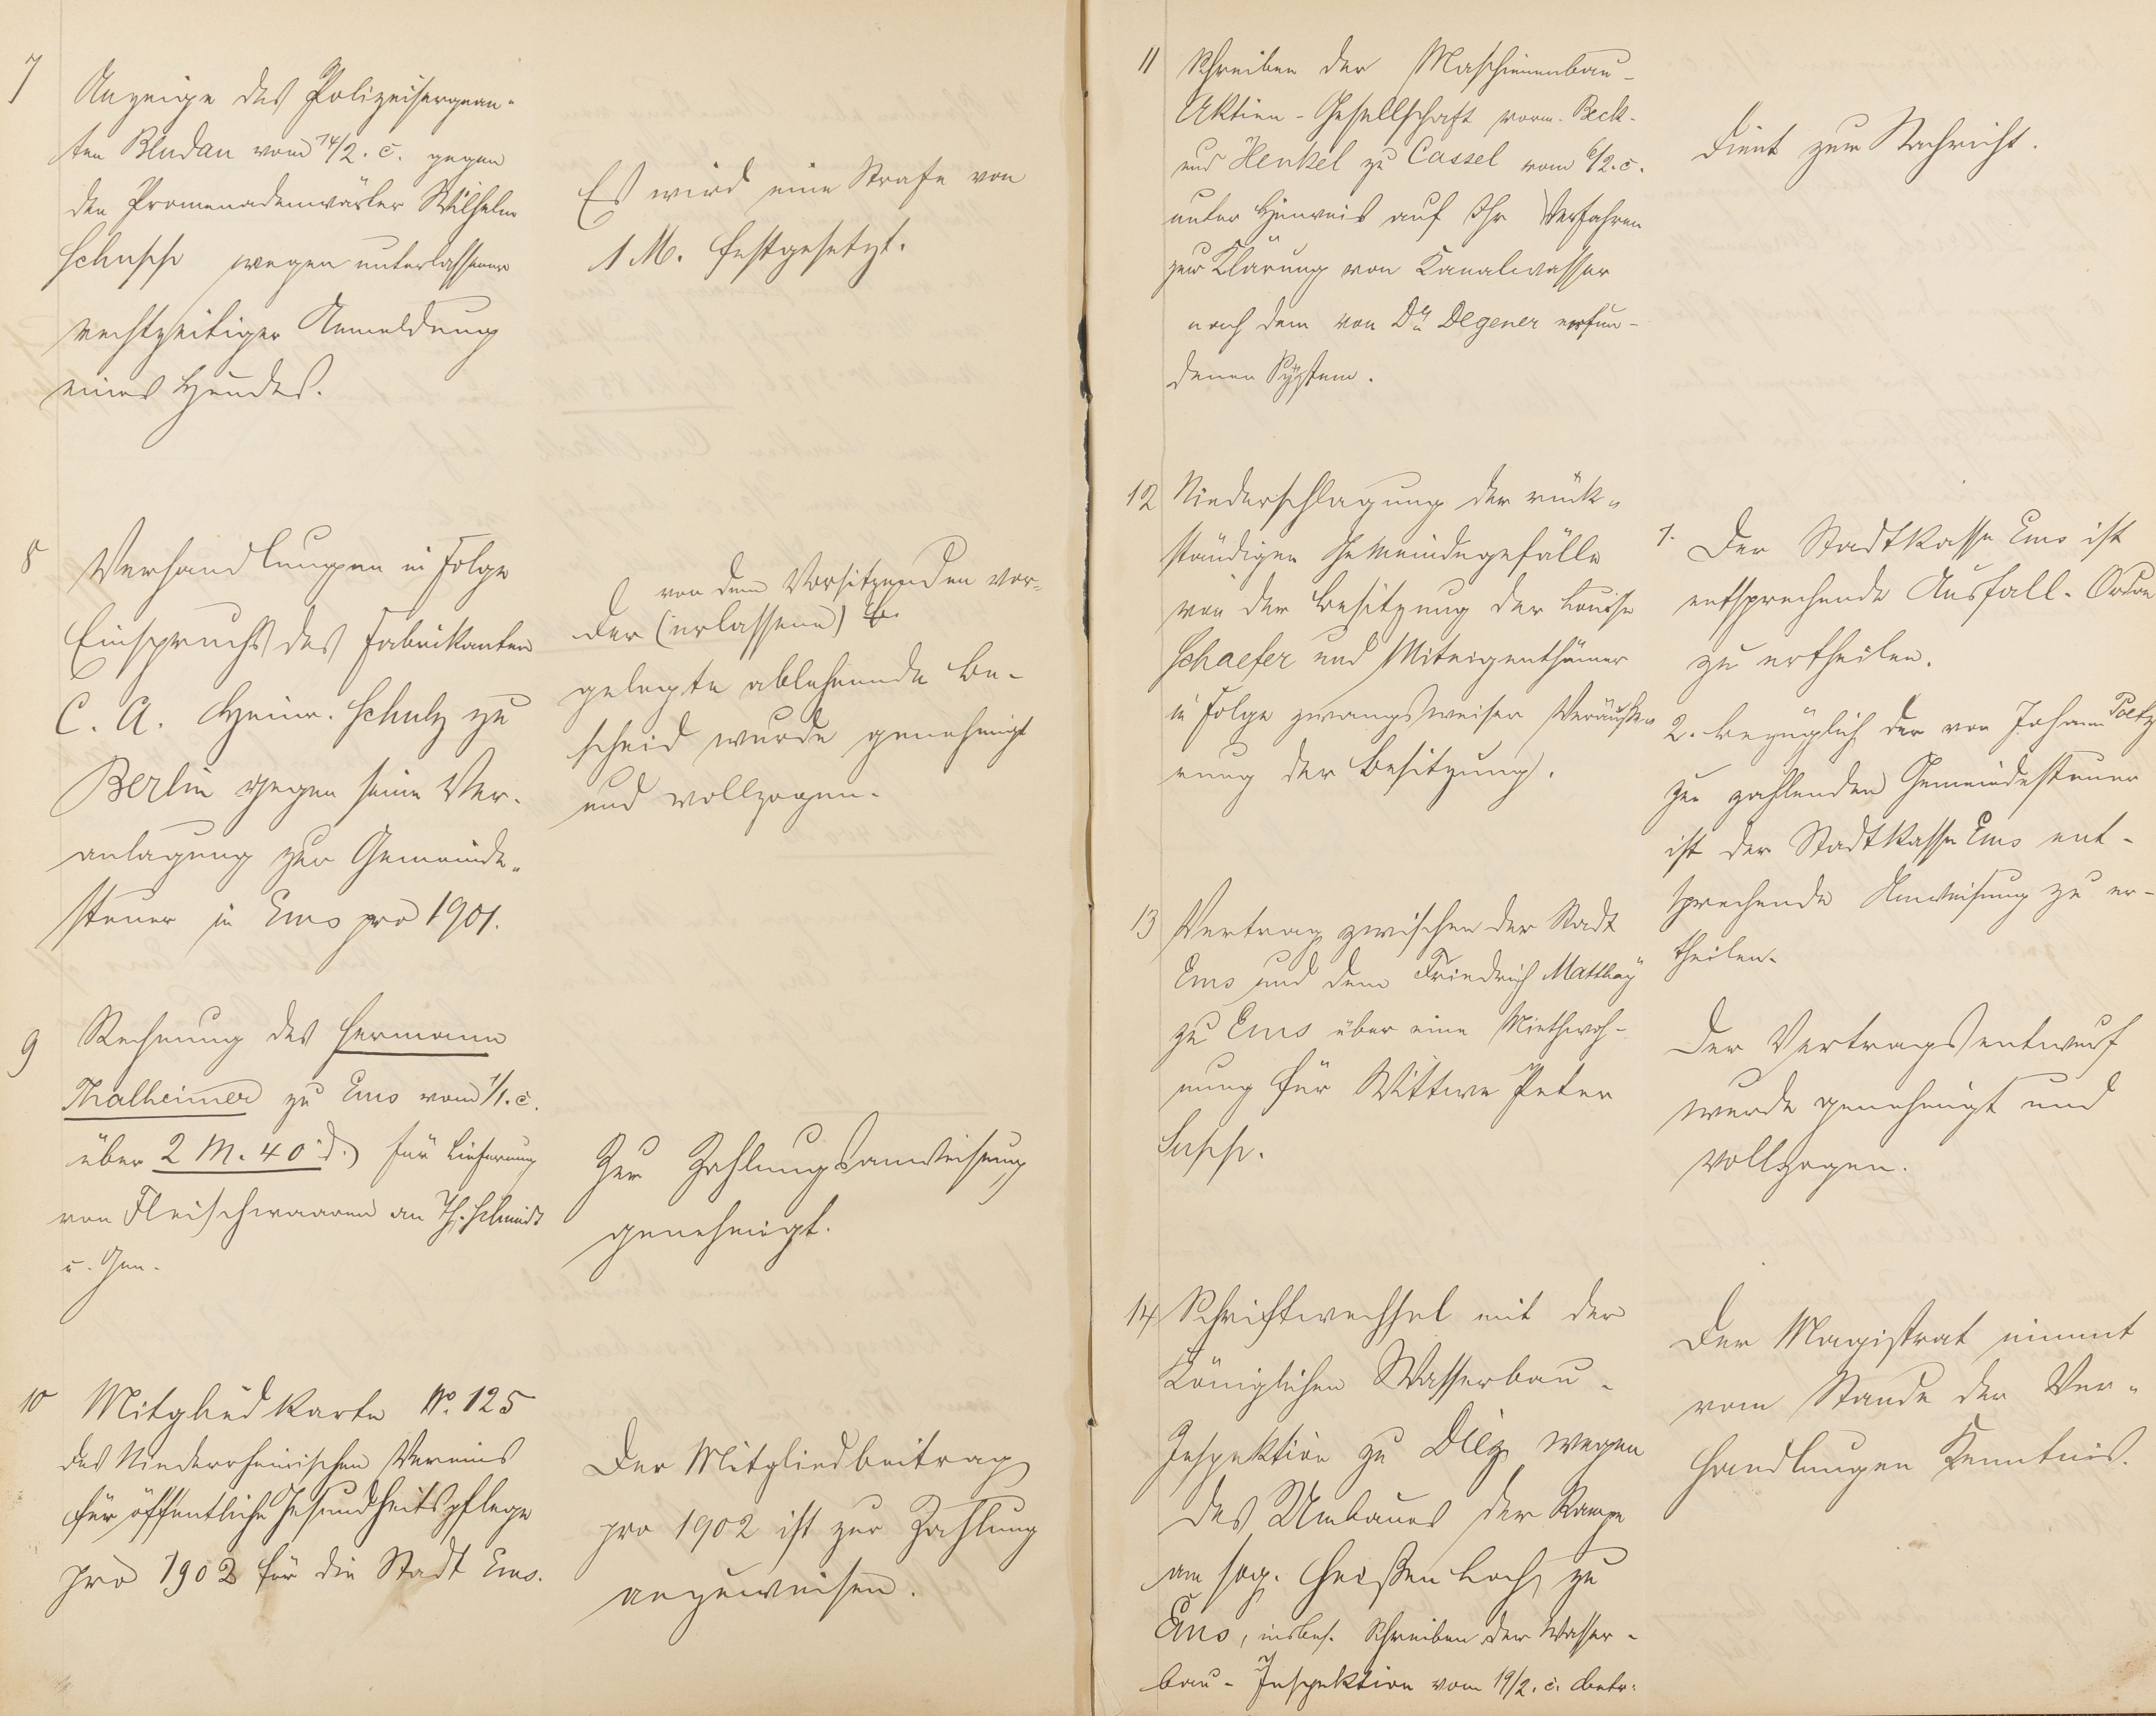 7
Anzeige des Polizeisergean-
ten Bludau vom 14/2. c. gegen
den Promenadenwärter Wilhelm
Schupp wegen unterlassener
rechtzeitiger Anmeldung
eines Hundes.
Es wird eine Strafe von
1 M. festgesetzt.
8
Verhandlungen in Folge
Einspruchs des Fabrikanten
C. A. Heinr. Schulz zu
Berlin gegen seine Ver-
anlagung zur Gemeinde-
steuer in Ems pro 1901.
von dem Vorsitzenden vor-
Der (erlassene)
gelegte ablehnende Be-
scheid wurde genehmigt
und vollzogen.
9
Rechnung des Hermann
Thalheimer zu Ems vom 1/1. c.
über 2 M. 40 d. für Lieferung
von Fleischwaaren an Th. Schmidt
u. Gen.
Zur Zahlungsanweisung
genehmigt.
10
Mitgliedkarte No. 125
des Niederrheinischen Vereins
für öffentliche Gesundheitspflege
pro 1902 für die Stadt Ems.
Der Mitgliedbeitrag
pro 1902 ist zur Zahlung
anzuweisen.
11
Schreiben der Maschinenbau-
Aktien-Gesellschaft vorm. Beck-
und Henkel zu Cassel vom 6/2. c.
unter Hinweis auf Ihr Verfahren
zur Klärung von Kanalwasser
nach dem von Dr. Degener erfun-
denen System.
Dient zur Nachricht.
12
Niederschlagung der rück-
ständigen Gemeindegefälle
von der Besitzung der Louise
Schaefer und Miteigenthümer
in Folge zwangsweiser Veräuße-
rung der Besitzung.
1. Der Stadtkasse Ems ist
entsprechende Ausfall-Ordre
zu ertheilen.
2. bezüglich der von Johann
zu zahlenden Gemeindesteuer
ist der Stadtkasse Ems ent-
sprechende Anweisung zu er-
theilen.
13
Vertrag zwischen der Stadt
Ems und dem Friedrich Matthay
zu Ems über eine Miethwoh-
nung für Wittwe Peter
Supp.
Der Vertragsentwurf
wurde genehmigt und
vollzogen.
14
Schriftwechsel mit der
Königlichen Wasserbau-
Inspektion zu Diez wegen
des Umbaues der Rampe
am sog. heißen Loch zu
Ems, insbes. Schreiben der Wasser-
bau-Inspektion vom 19/2. c. betr.
Der Magistrat nimmt
vom Stande der Ver-
handlungen Kenntnis.